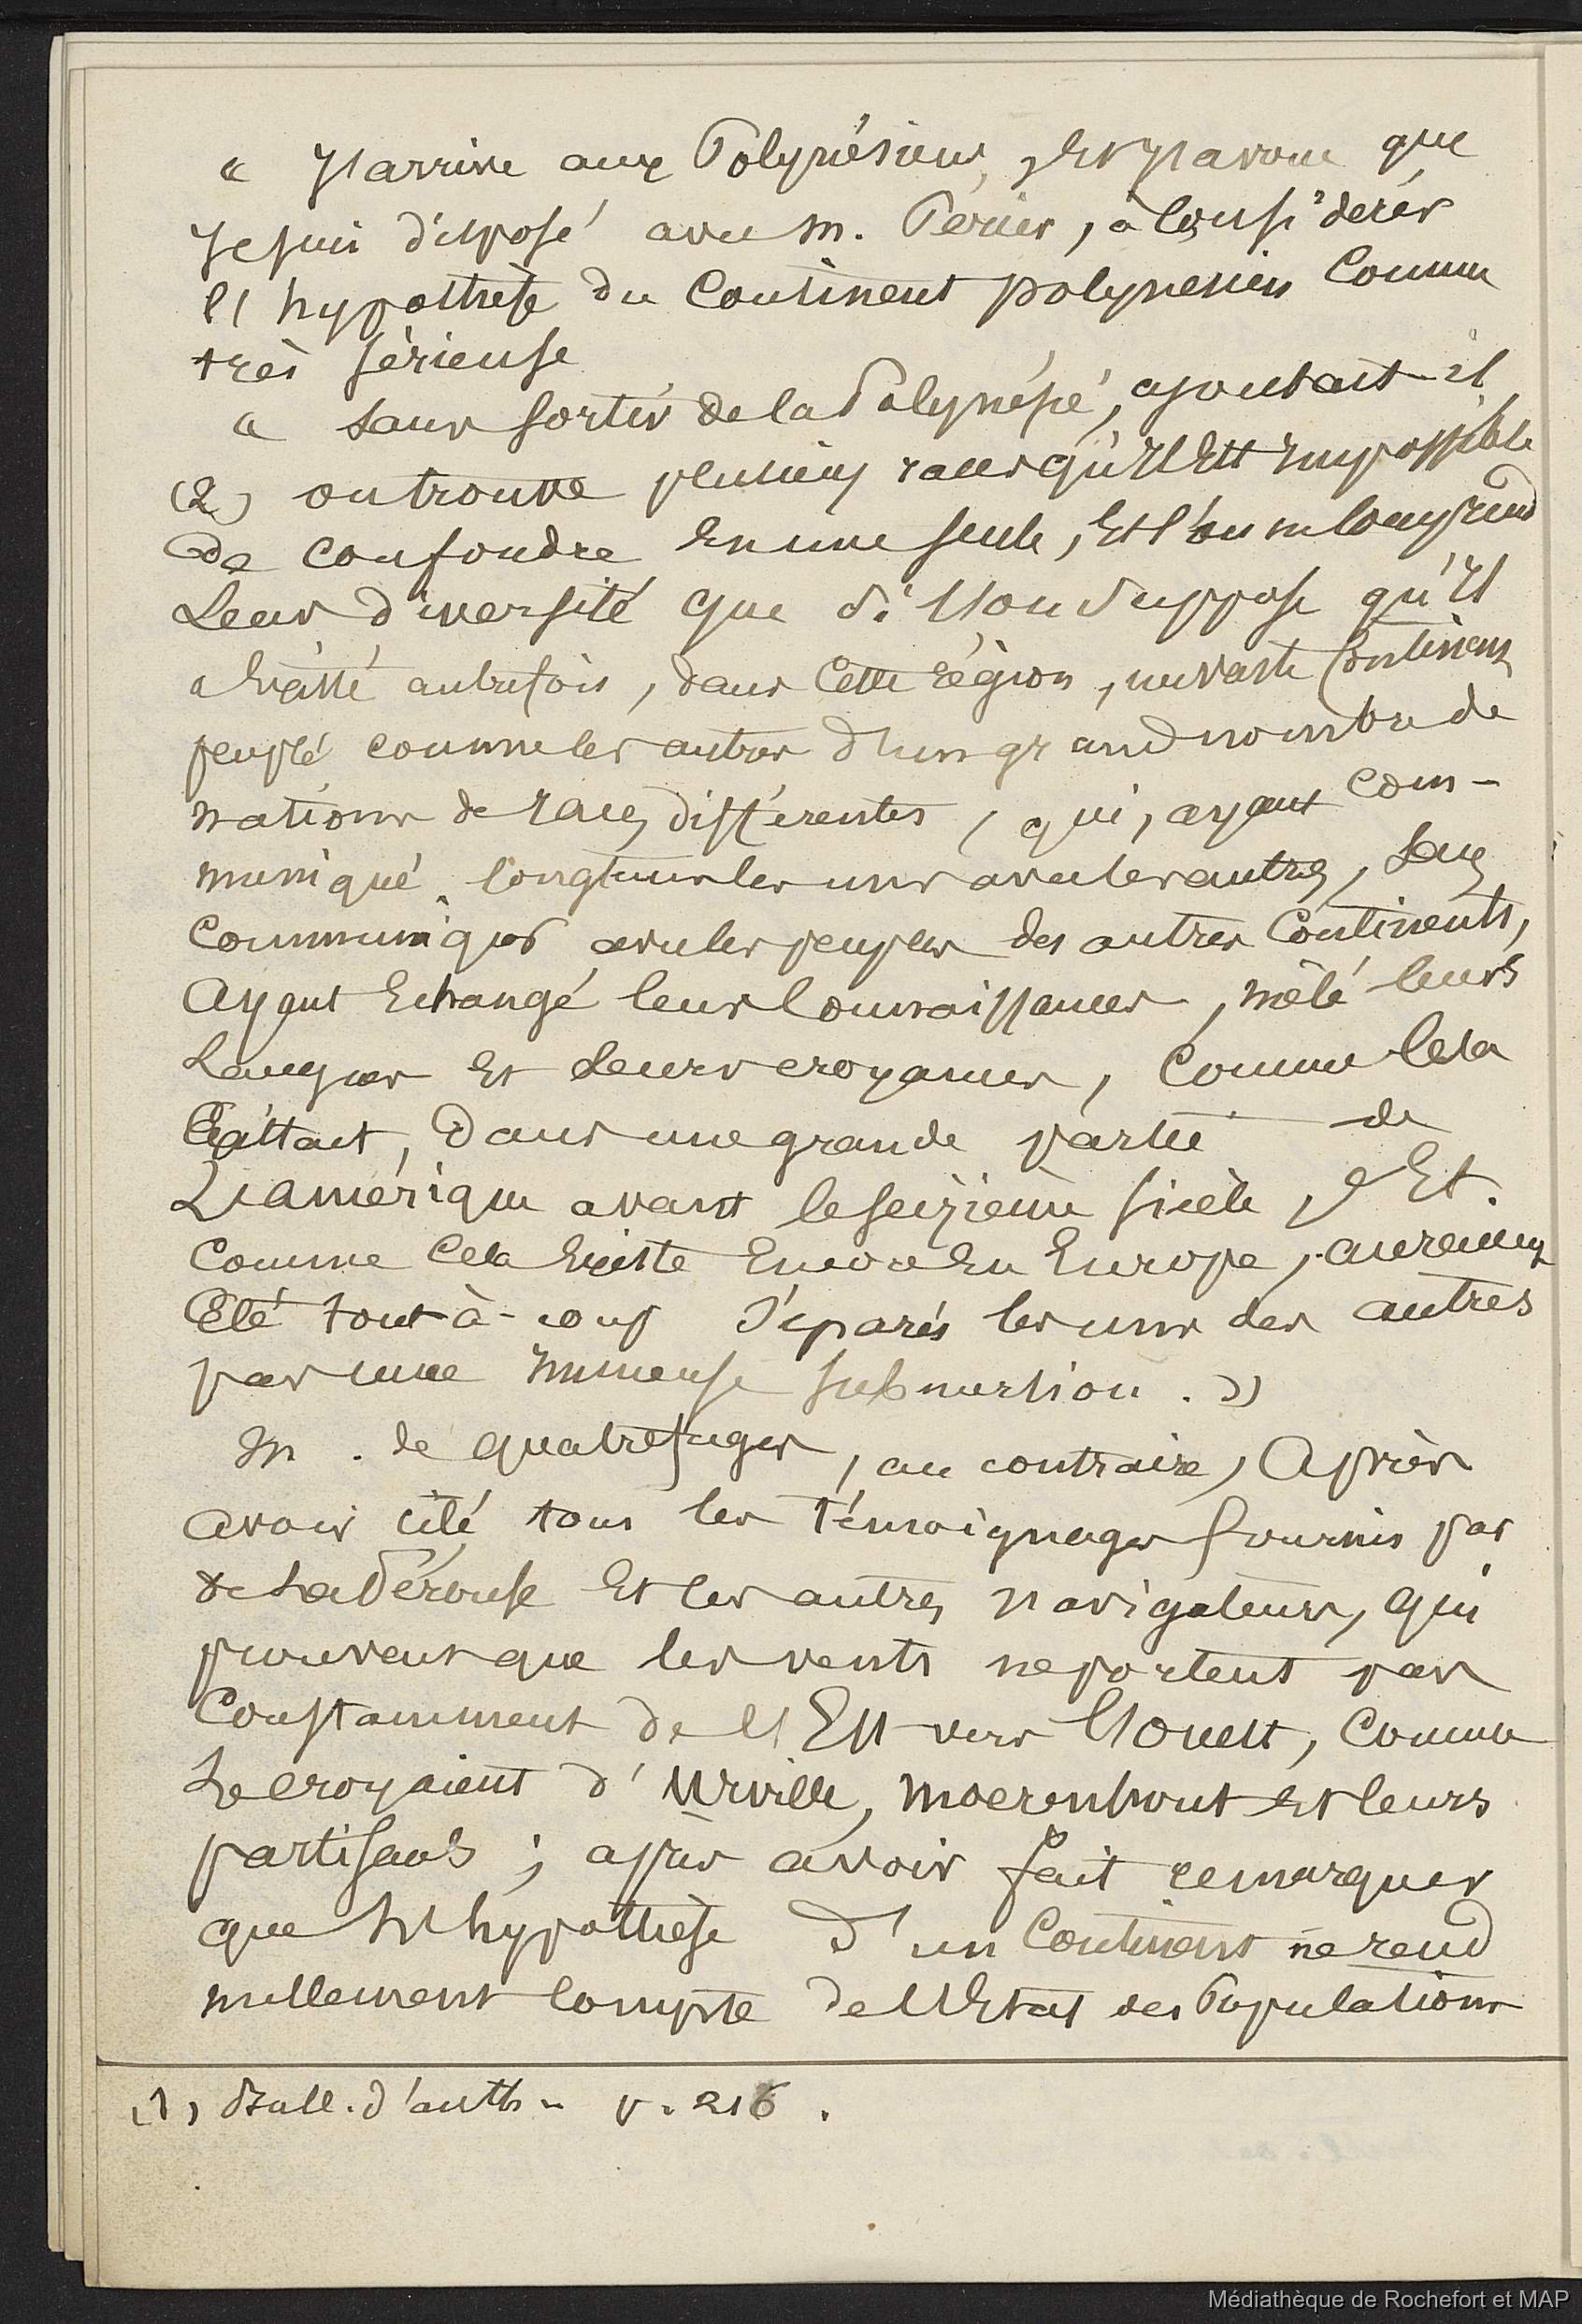 « J'arrive aux Polynésiens, Et J'avoue que
Je suis disposé avec M. Périer, à Considérér
l'hypothèse du Continent polynesien Comme
très sérieuse
« Sans sortir de la Polynésie, ajoutait-il,
(2) on trouve plusieurs races qu'Il Est Impossible
de confondre En une seule, Et l'on ne Comprend
Leur diversité que si l'on Suppose qu'Il
a Existé autrefois, dans Cette région, un vaste Continent
peuplé comme les autres d'un grand nombre de
nations de races différentes, qui, ayant com-
muniqué longtemps les uns avec les autres,
Communiqué avec les peuples des autres Continents,
Ayant Echangé leurs Connaissances, mêlé leurs
Langues Et Leurs croyances, Comme Cela
Existait, Dans une grande partie de
L'amérique avant le seizième siècle, Et
Comme Cela Existe Encore En Europe, auraient
Eté tout-à-coup séparés les uns des autres
par une Immense submersion. »
M. de Quatrefages, au contraire, Après
avoir cité tous les Témoignages fournis par
de LaPérouse Et les autres Navigateurs, qui
prouvent que les vents ne portent pas
Constamment de l'Est vers l'Ouest, Comme
Le croyaient d'Urville, Moerenhout Et leurs
partisans ; après avoir fait remarquer
que L'hypothèse d'un Continent ne rend
nullement Compte de l'Etat des Populations
(1) Bull. d'anth. p. 216.
Médiathèque de Rochefort et MAP